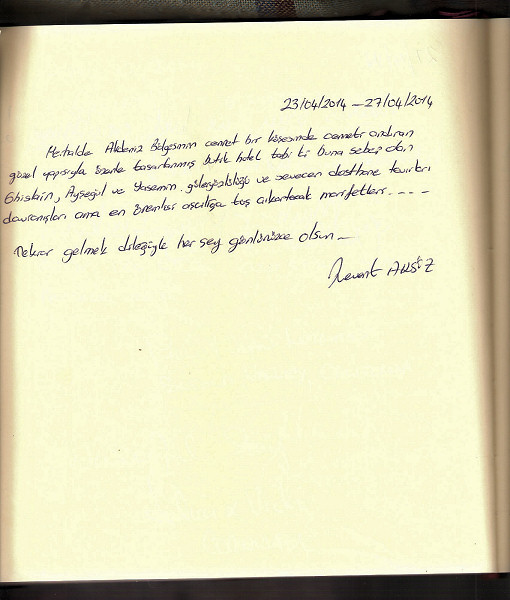 23/04/2014 - 27/04/2014
Herhalde Akdeniz Bölgesinin cennet bir köşesinde cenneti andıran
güzel yapısıyla özenle tasarlanmış butik hotel tabi ki buna sebep olan
Ghislain, Ayşegül ve Yasemin güleryüzlülüğü ve sevecen dosthane tavırları
davranışları ama en önemlisi aşçılığa taş çıkartacak marifetleri....
Tekrar gelmek dileğiyle her şey gönlünüzce olsun
Levent AKSÖZ